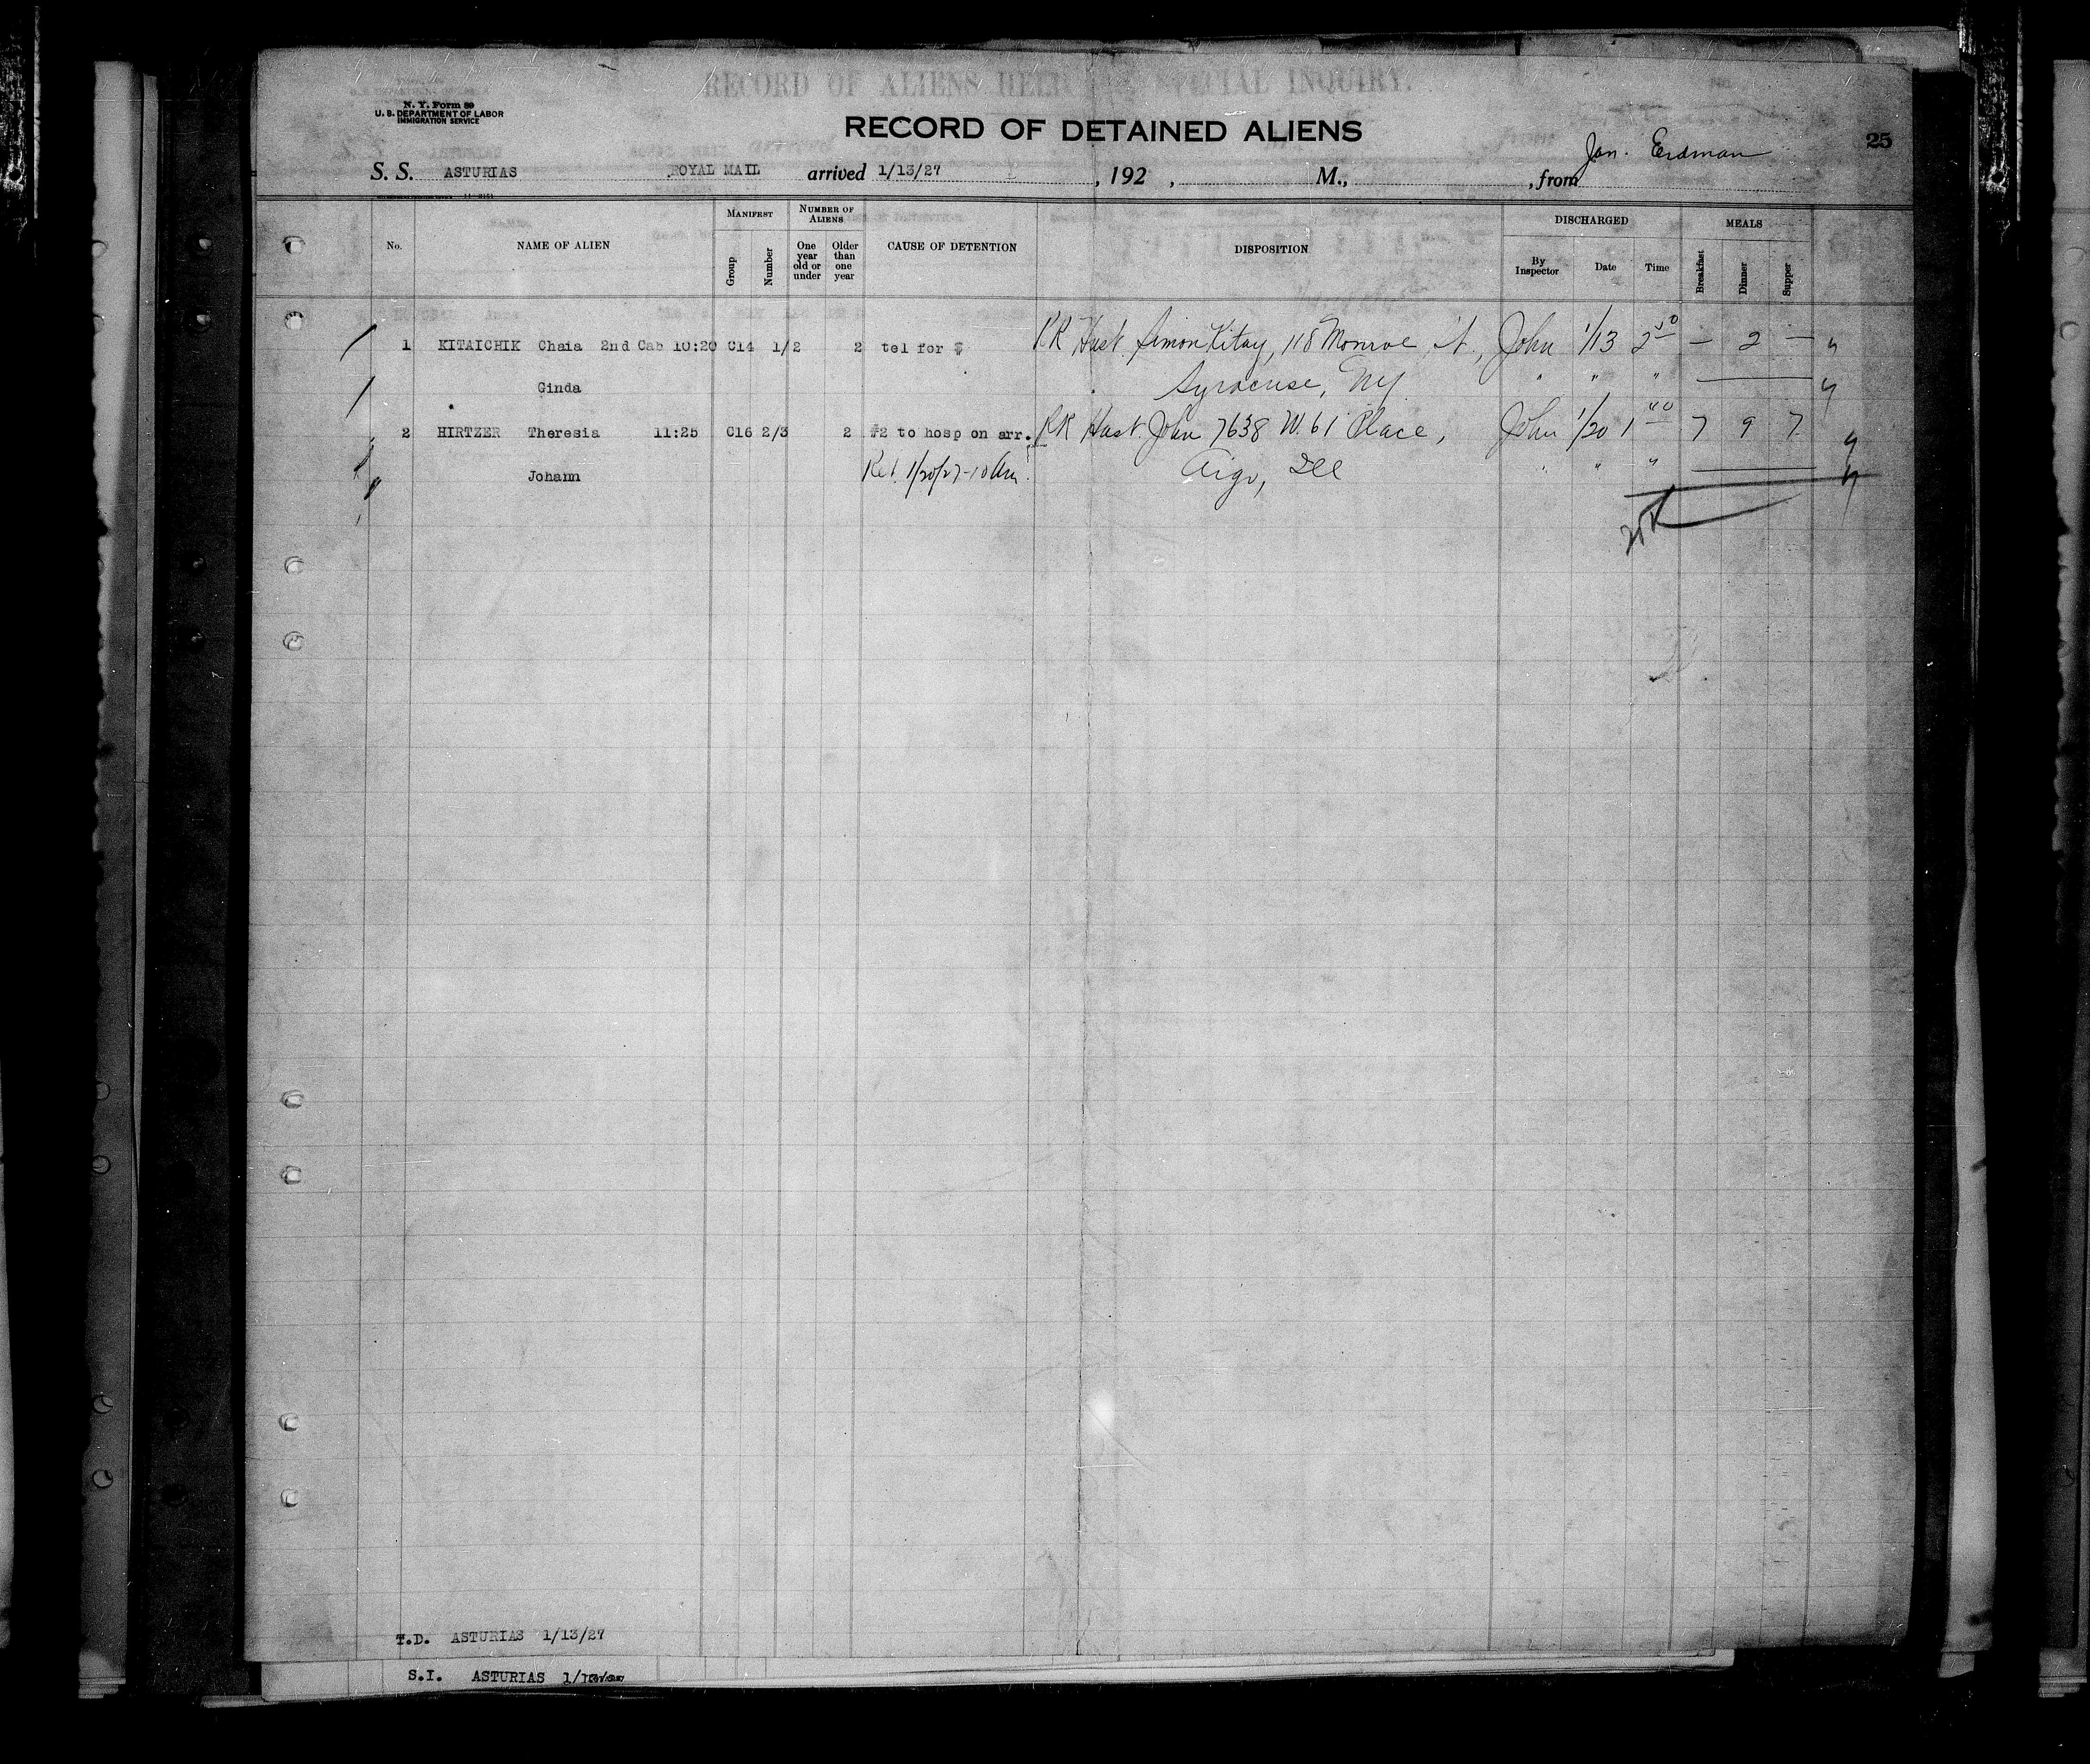 RECORD OF ALIENS HELD SPECIAL INQUIRY.
N. Y. Form 89
U. S. DEPARTMENT OF LABOR
IMMIGRATION SERVICE
RECORD OF DETAINED ALIENS
25
Jan. Erdman
S. S. ASTURIAS ROYAL MAIL arrived 1/13/27, 192 , M., , from
No. NAME OF ALIEN MANIFEST Group Number NUMBER OF ALIENS One year old or under Older than one year CAUSE OF DETENTION DISPOSITION DISCHARGED By Inspector Date Time MEALS Breakfast Dinner Supper
1 KITAICHIK Chaia 2nd Cab 10:20 C14 1/2 2 tel for $ RR Husb. Simon Kitay, 118 Monroe St., John 1/13 2 50 — 2 —
Ginda Syracuse, NY " " "
2 HIRTZER Theresia 11:25 C16 2/3 2 #2 to hosp on arr. RR Husb. John 7638 W. 61 Place, John 1/20 1 40 7 9 7
Johann Ret. 1/20/27-10 am. Argo, Ill " " "
T.D. ASTURIAS 1/13/27
S.I. ASTURIAS